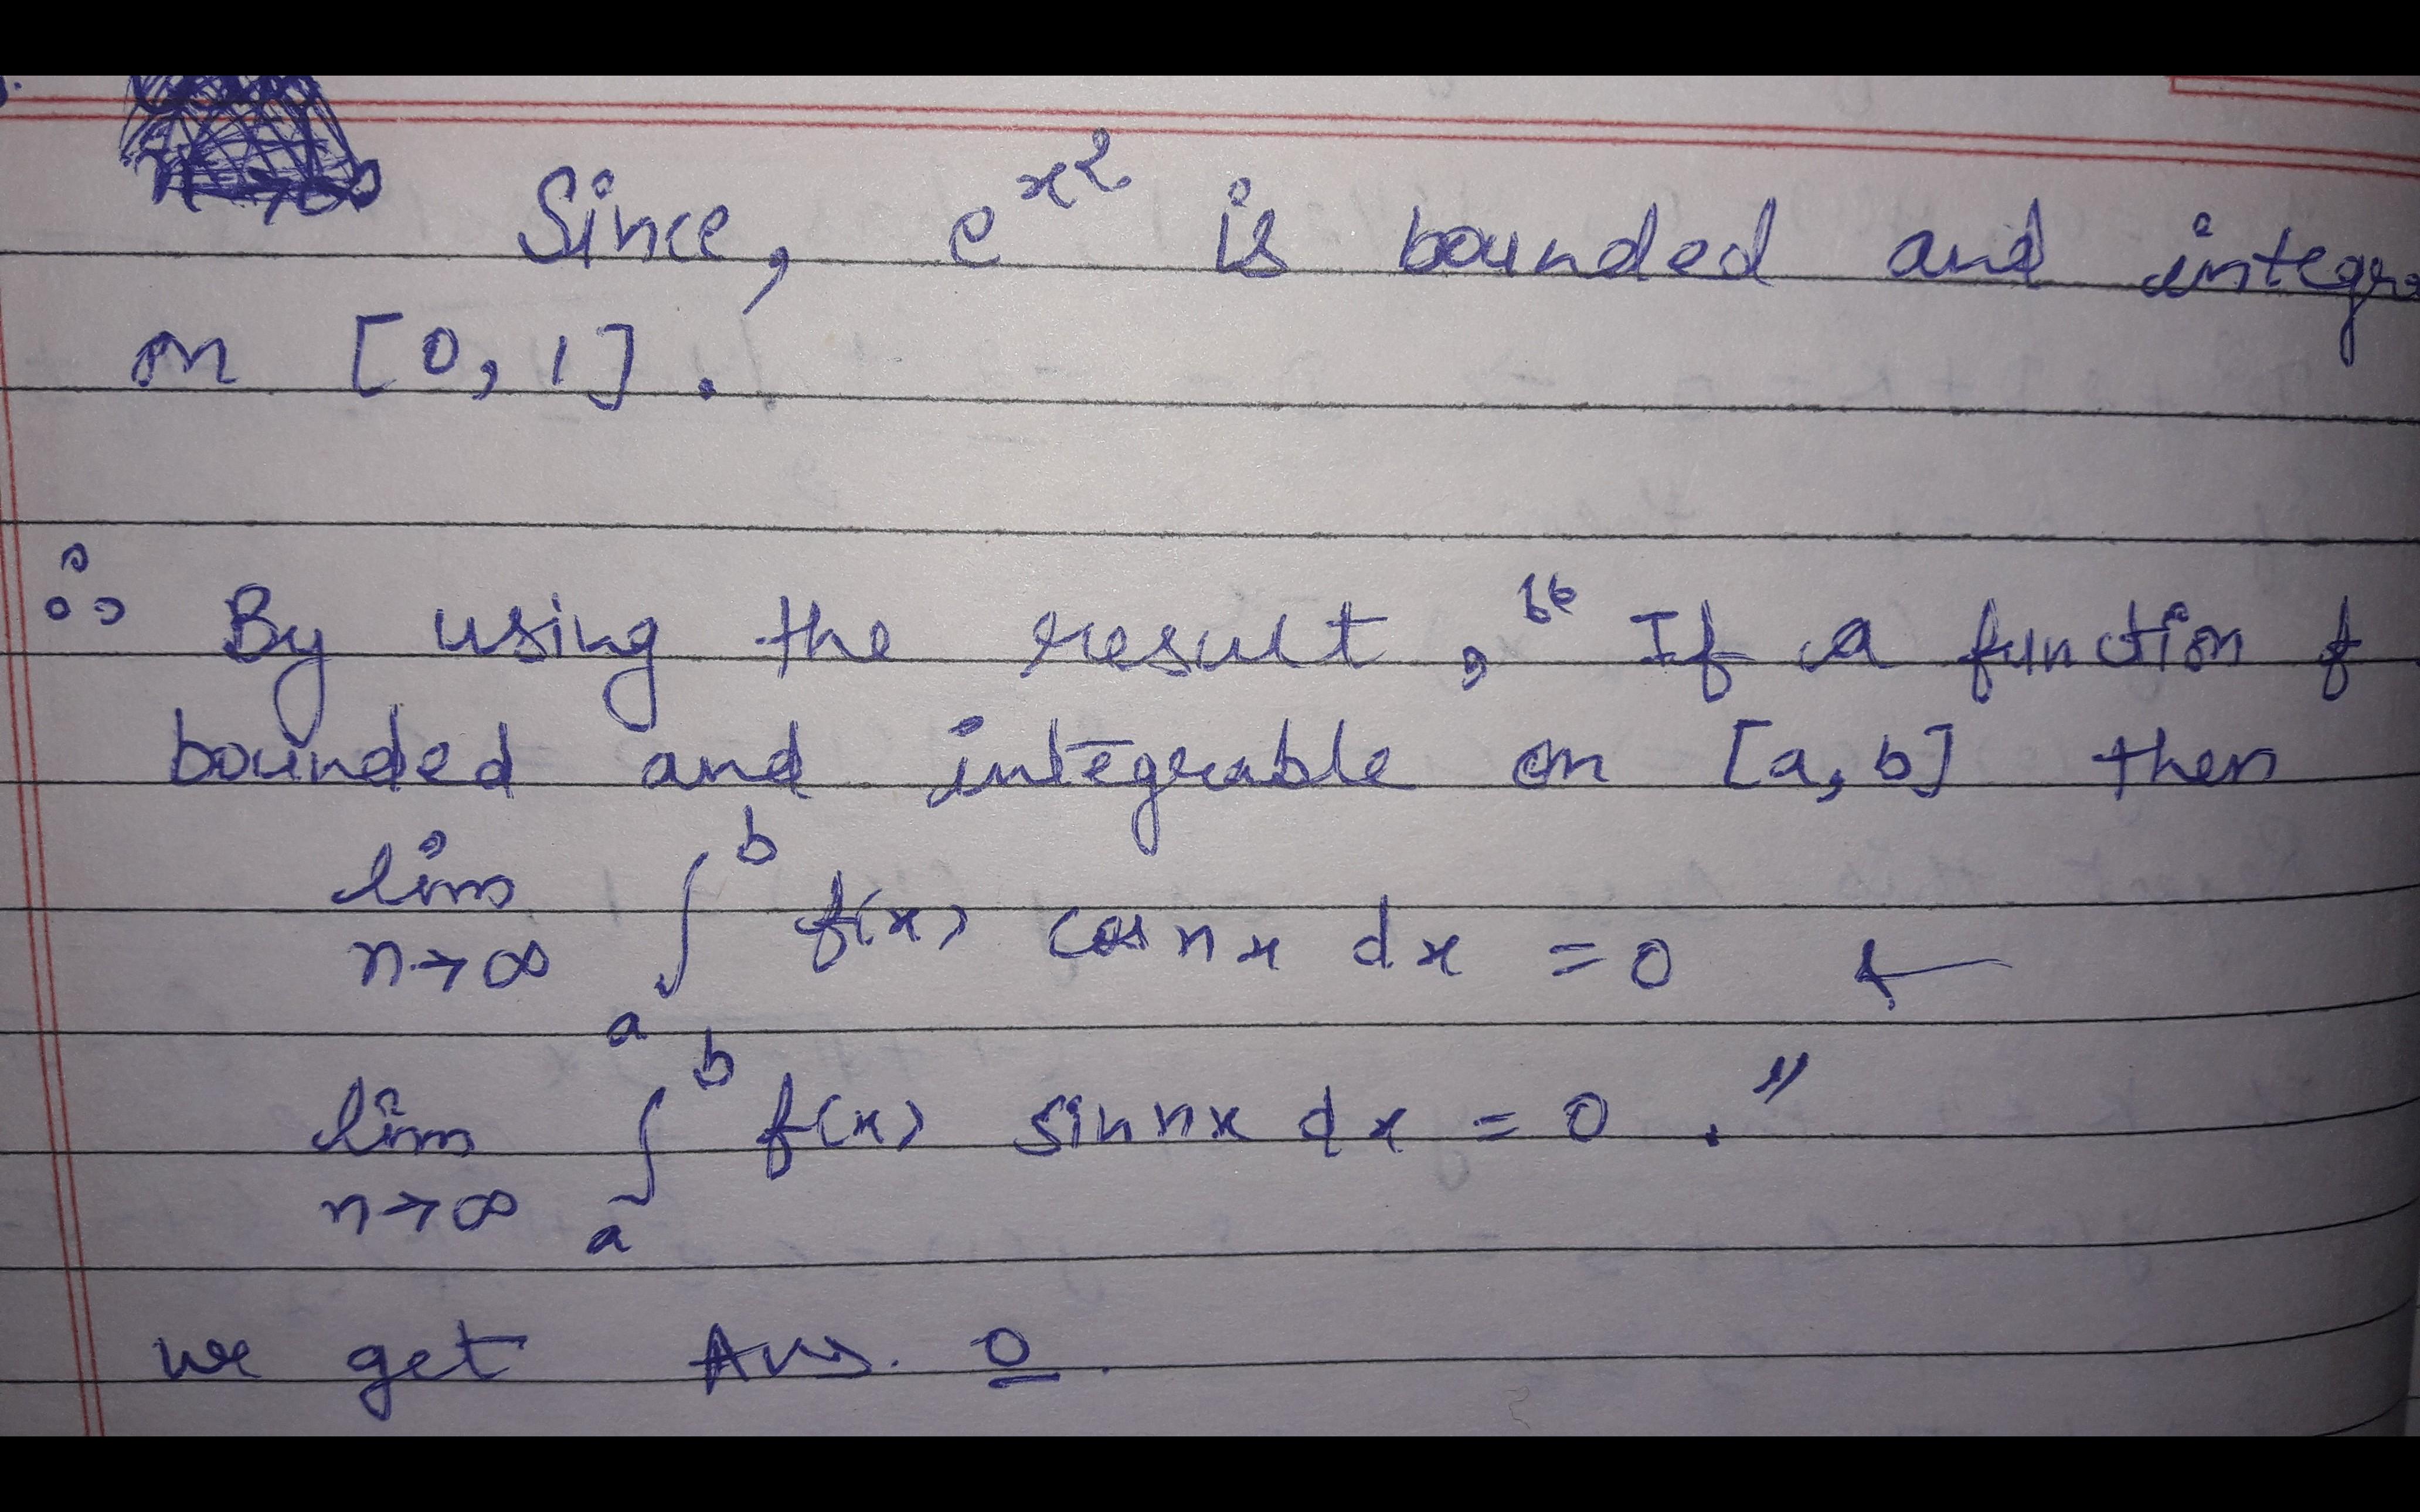 n→∞ Since, e^{x^2} is bounded and integra
on [0,1].
∴ By using the result, “ If a function f
bounded and integrable on [a,b] then
lim_{n→∞} ∫_a^b f(x) cos nx dx = 0 ←
lim_{n→∞} ∫_a^b f(x) sin nx dx = 0 . ”
we get Ans. 0 .